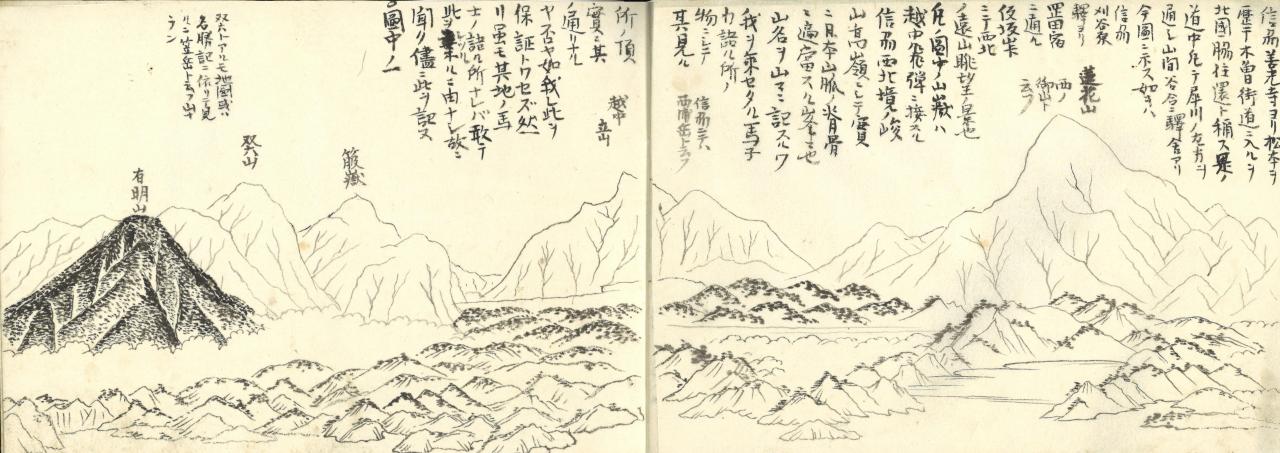 信州善光寺ヨリ松本ヲ
歴テ木曽街道ニ入ルヲ
北國脇往還ト稱ス其ノ
道中凡テ犀川ノ左右ヲ
通シ山間谷合ニ驛舎アリ
今圖ニ示ス如キハ
信州
刈谷原
驛ヨリ
罡田宿
ニ通ル
蓮花山
西ノ
御山ト
云フ
ニテ西北
ノ遠山眺望ノ景也
凡ソ圖中ノ山嶽ハ
越中飛彈ニ接スル
信州西北境ノ峻
山高嶺ニシテ實
ニ日本山脈ノ脊骨
山谷ヲ山マニ記スルワ
我ヲ乗セタル馬子
カ語ル所ノ
物ニシテ
其見ル
信州ニテハ
西浦岳ト云フ
所ノ頂
實ニ其
通リナル
ヤ否ヤ如我レ此ヲ
保証トワセズ然
リ虽モ其地ノ馬
士ノ語ル所ナレバ敢テ
聞クノ儘ニ此ヲ記ス
圖中ノ一
越中
岳
籏嶽
癸山
有明山
癸トアルモ地圖或ハ
名勝記ニ依リテ見
ルニ笠岳ト云フ山ナ
ラン